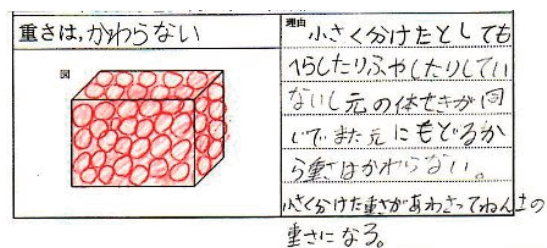 重さは,かわらない
図
理由
小さく分けたとしても
へらしたりふやしたりしてい
ないし元の体せきが同
じでまた元にもどるか
ら重さはかわらない。
小さく分けた重さがあわさってねん土の
重さになる。